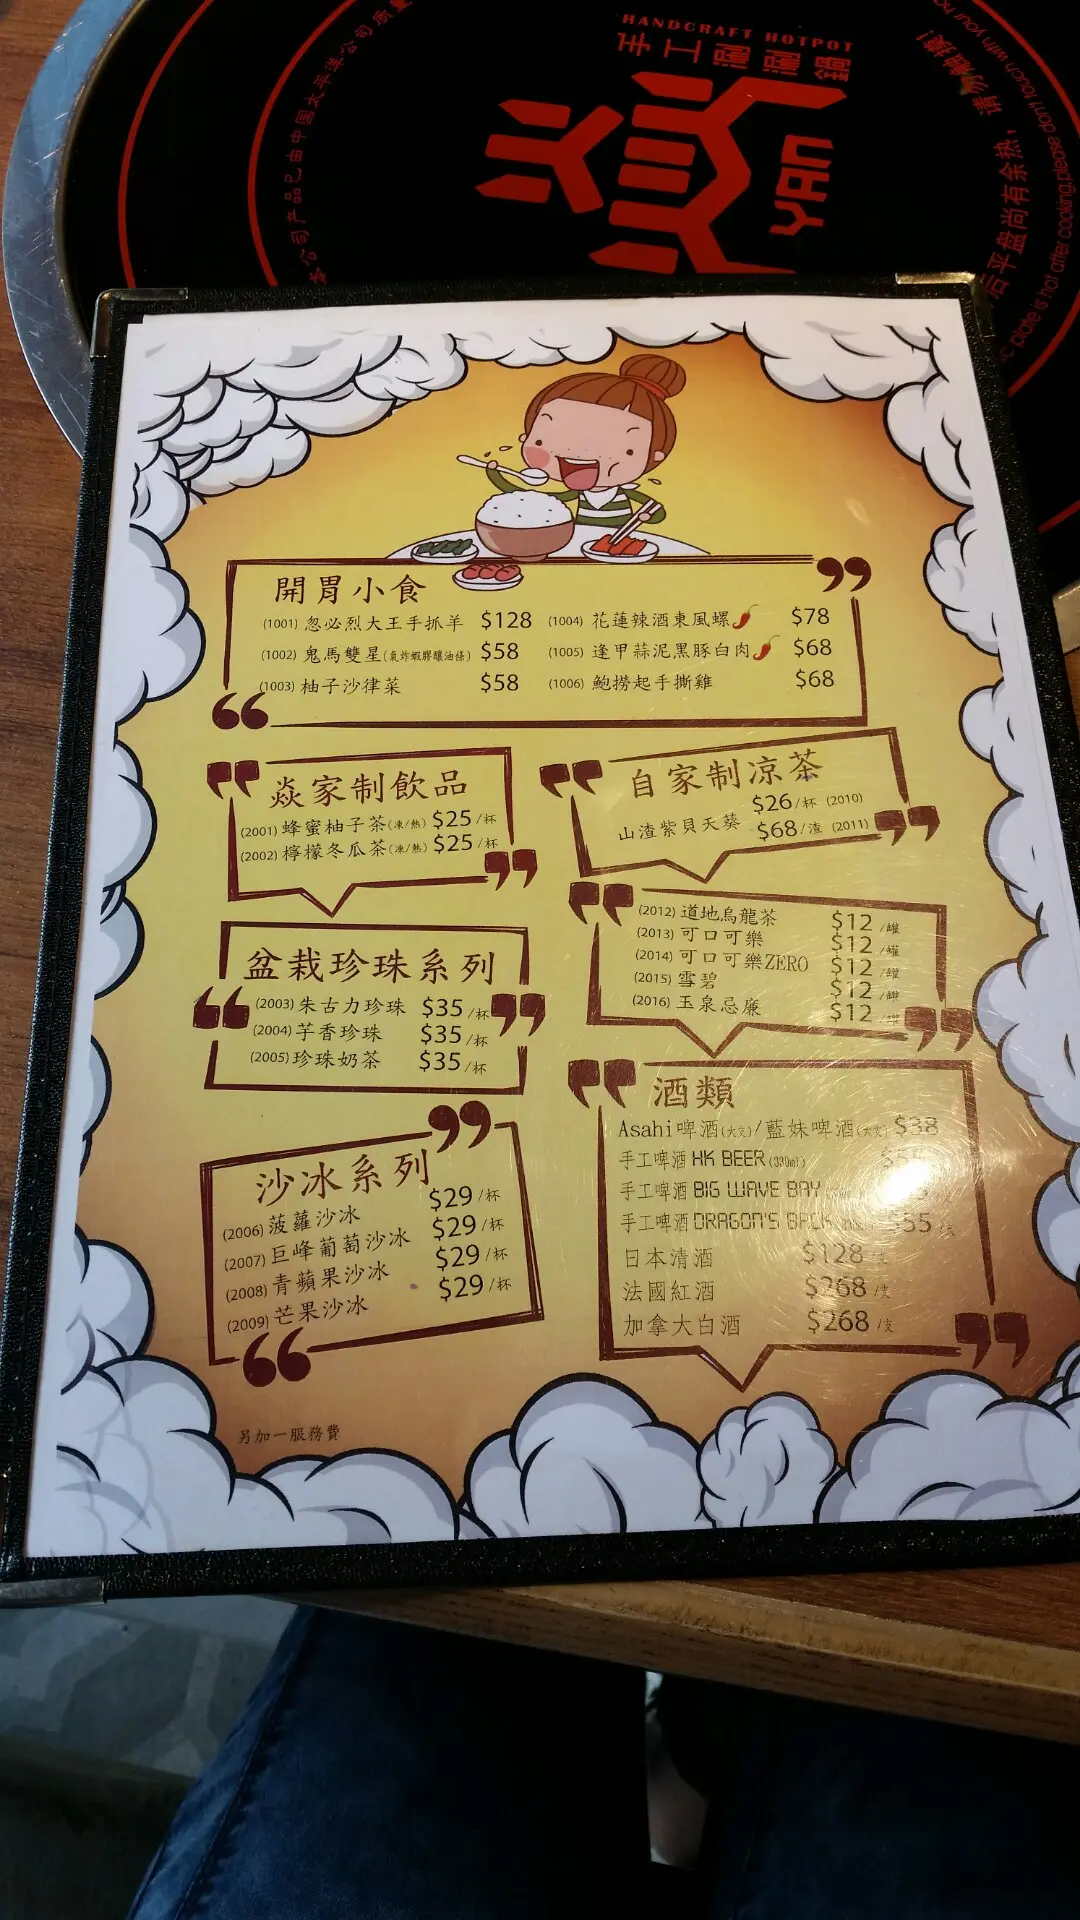 HANDCRAFT HOTPOT
手工滾滾鍋
YAN
本公司产品已由中国太平洋公司质量
请勿触摸!
后平盘尚有余热,
plate is hot after cooking,please don't touch with your ha
開胃小食
(1001) 忽必烈大王手抓羊 $128
(1002) 鬼馬雙星(氣炸蝦膠釀油條) $58
(1003) 柚子沙律菜 $58
(1004) 花蓮辣酒東風螺 $78
(1005) 逢甲蒜泥黑豚白肉 $68
(1006) 鮑撈起手撕雞 $68
焱家制飲品
(2001) 蜂蜜柚子茶(凍/熱) $25/杯
(2002) 檸檬冬瓜茶(凍/熱) $25/杯
自家制凉茶
$26/杯 (2010)
山渣紫貝天葵
$68/渣 (2011)
盆栽珍珠系列
(2003) 朱古力珍珠 $35/杯
(2004) 芋香珍珠 $35/杯
(2005) 珍珠奶茶 $35/杯
(2012) 道地烏龍茶 $12/罐
(2013) 可口可樂 $12/罐
(2014) 可口可樂ZERO $12/罐
(2015) 雪碧 $12/罐
(2016) 玉泉忌廉 $12/罐
沙冰系列
(2006) 菠蘿沙冰 $29/杯
(2007) 巨峰葡萄沙冰 $29/杯
(2008) 青蘋果沙冰 $29/杯
(2009) 芒果沙冰 $29/杯
酒類
Asahi啤酒(大支)/藍妹啤酒(大支) $38
手工啤酒 HK BEER (330ml)
手工啤酒 BIG WAVE BAY
手工啤酒 DRAGON'S BACK $55
日本清酒 $128/支
法國紅酒 $268/支
加拿大白酒 $268/支
另加一服務費